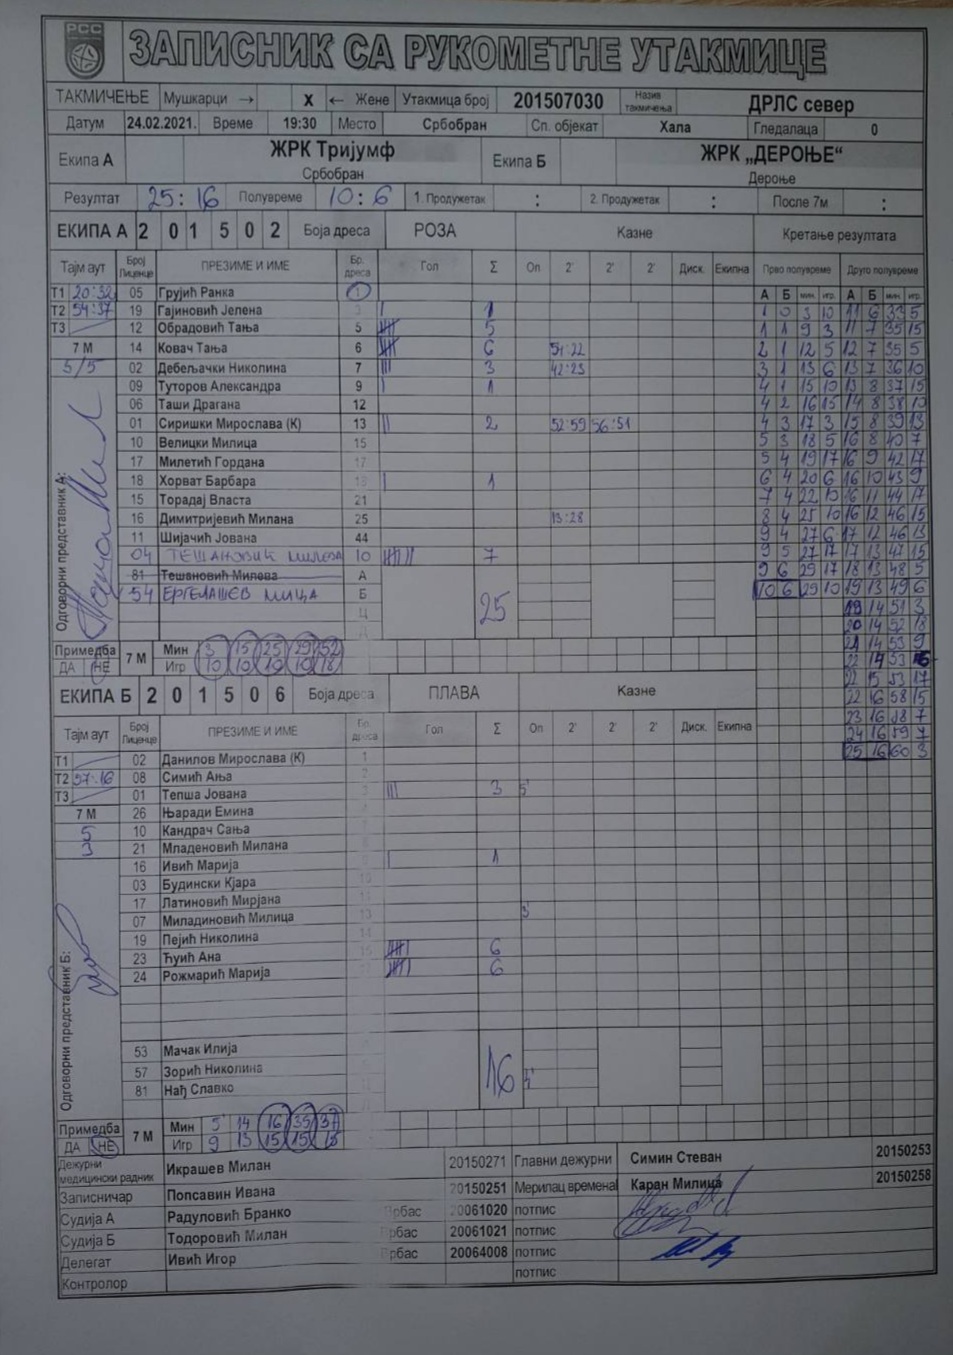 РСС
ЗАПИСНИК СА РУКОМЕТНЕ УТАКМИЦЕ
ТАКМИЧЕЊЕ Мушкарци → X ← Жене Утакмица број 201507030 Назив такмичења ДРЛС север
Датум 24.02.2021. Време 19:30 Место Србобран Сп. објекат Хала Гледалаца 0
Екипа А ЖРК Тријумф Србобран Екипа Б ЖРК „ДЕРОЊЕ“ Дероње
Резултат 25:16 Полувреме 10:6 1. Продужетак : 2. Продужетак : После 7м :
ЕКИПА А 2 0 1 5 0 2 Боја дреса РОЗА Казне Кретање резултата
Тајм аут Број Лиценце ПРЕЗИМЕ И ИМЕ Бр. дреса Гол Σ Оп 2' 2' 2' Диск. Екипна Прво полувреме Друго полувреме
А Б мин. игр. А Б мин. игр.
Т1 20:32 05 Грујић Ранка 1
Т2 54:37 19 Гајиновић Јелена 1 1 0 3 10 11 6 33 5
Т3 12 Обрадовић Тања 5 5 1 1 9 3 11 7 35 15
7 М 14 Ковач Тања 6 6 51:22 2 1 12 5 12 7 35 5
5/5 02 Дебељачки Николина 7 3 42:23 3 1 13 6 13 7 36 10
09 Туторов Александра 9 1 4 1 15 10 13 8 37 15
06 Таши Драгана 12 4 2 16 15 14 8 38 10
01 Сиришки Мирослава (К) 13 2 52:59 56:51 4 3 17 3 15 8 39 13
10 Велицки Милица 15 5 3 18 5 16 8 40 7
17 Милетић Гордана 17 5 4 19 17 16 9 42 17
18 Хорват Барбара 1 6 4 20 6 16 10 43 9
15 Торадај Власта 21 7 4 22 10 16 11 44 17
16 Димитријевић Милана 25 13:28 8 4 25 10 16 12 46 15
11 Шијачић Јована 44 9 4 27 6 17 12 46 13
04 ТЕШАНОВИЋ МИЛЕВА 10 7 9 5 27 17 17 13 47 15
81 Тешановић Милева А 9 6 29 17 18 13 48 5
54 ЕРГЕЛАШЕВ МИЦА Б 25 10 6 29 10 19 13 49 6
Ц 19 14 51 3
20 14 52 18
21 14 53 9
22 14 53
22 15 53 17
22 16 58 15
23 16 58 7
24 16 59 7
25 16 60 3
Одговорни представник А:
Примедба ДА НЕ 7 М Мин 3 15 25 29 52
Игр 10 10 10 10 18
ЕКИПА Б 2 0 1 5 0 6 Боја дреса ПЛАВА Казне
Тајм аут Број Лиценце ПРЕЗИМЕ И ИМЕ Бр. дреса Гол Σ Оп 2' 2' 2' Диск. Екипна
Т1 02 Данилов Мирослава (К) 1
Т2 57:16 08 Симић Ања 2
Т3 01 Тепша Јована 3 3 5'
7 М 26 Њаради Емина
5 10 Кандрач Сања
3 21 Младеновић Милана
16 Ивић Марија 9 1
03 Будински Кјара
17 Латиновић Мирјана
07 Миладиновић Милица 13
19 Пејић Николина
23 Ћуић Ана 15 6
24 Рожмарић Марија 17 6
53 Мачак Илија 16
57 Зорић Николина
81 Нађ Славко
Одговорни представник Б:
Примедба ДА НЕ 7 М Мин 5' 14 16 35 37
Игр 9 13 15 15 15
Дежурни медицински радник Икрашев Милан 20150271 Главни дежурни Симин Стеван 20150253
Записничар Попсавин Ивана 20150251 Мерилац времена Каран Милица 20150258
Судија А Радуловић Бранко Врбас 20061020 потпис
Судија Б Тодоровић Милан Врбас 20061021 потпис
Делегат Ивић Игор Врбас 20064008 потпис
Контролор потпис